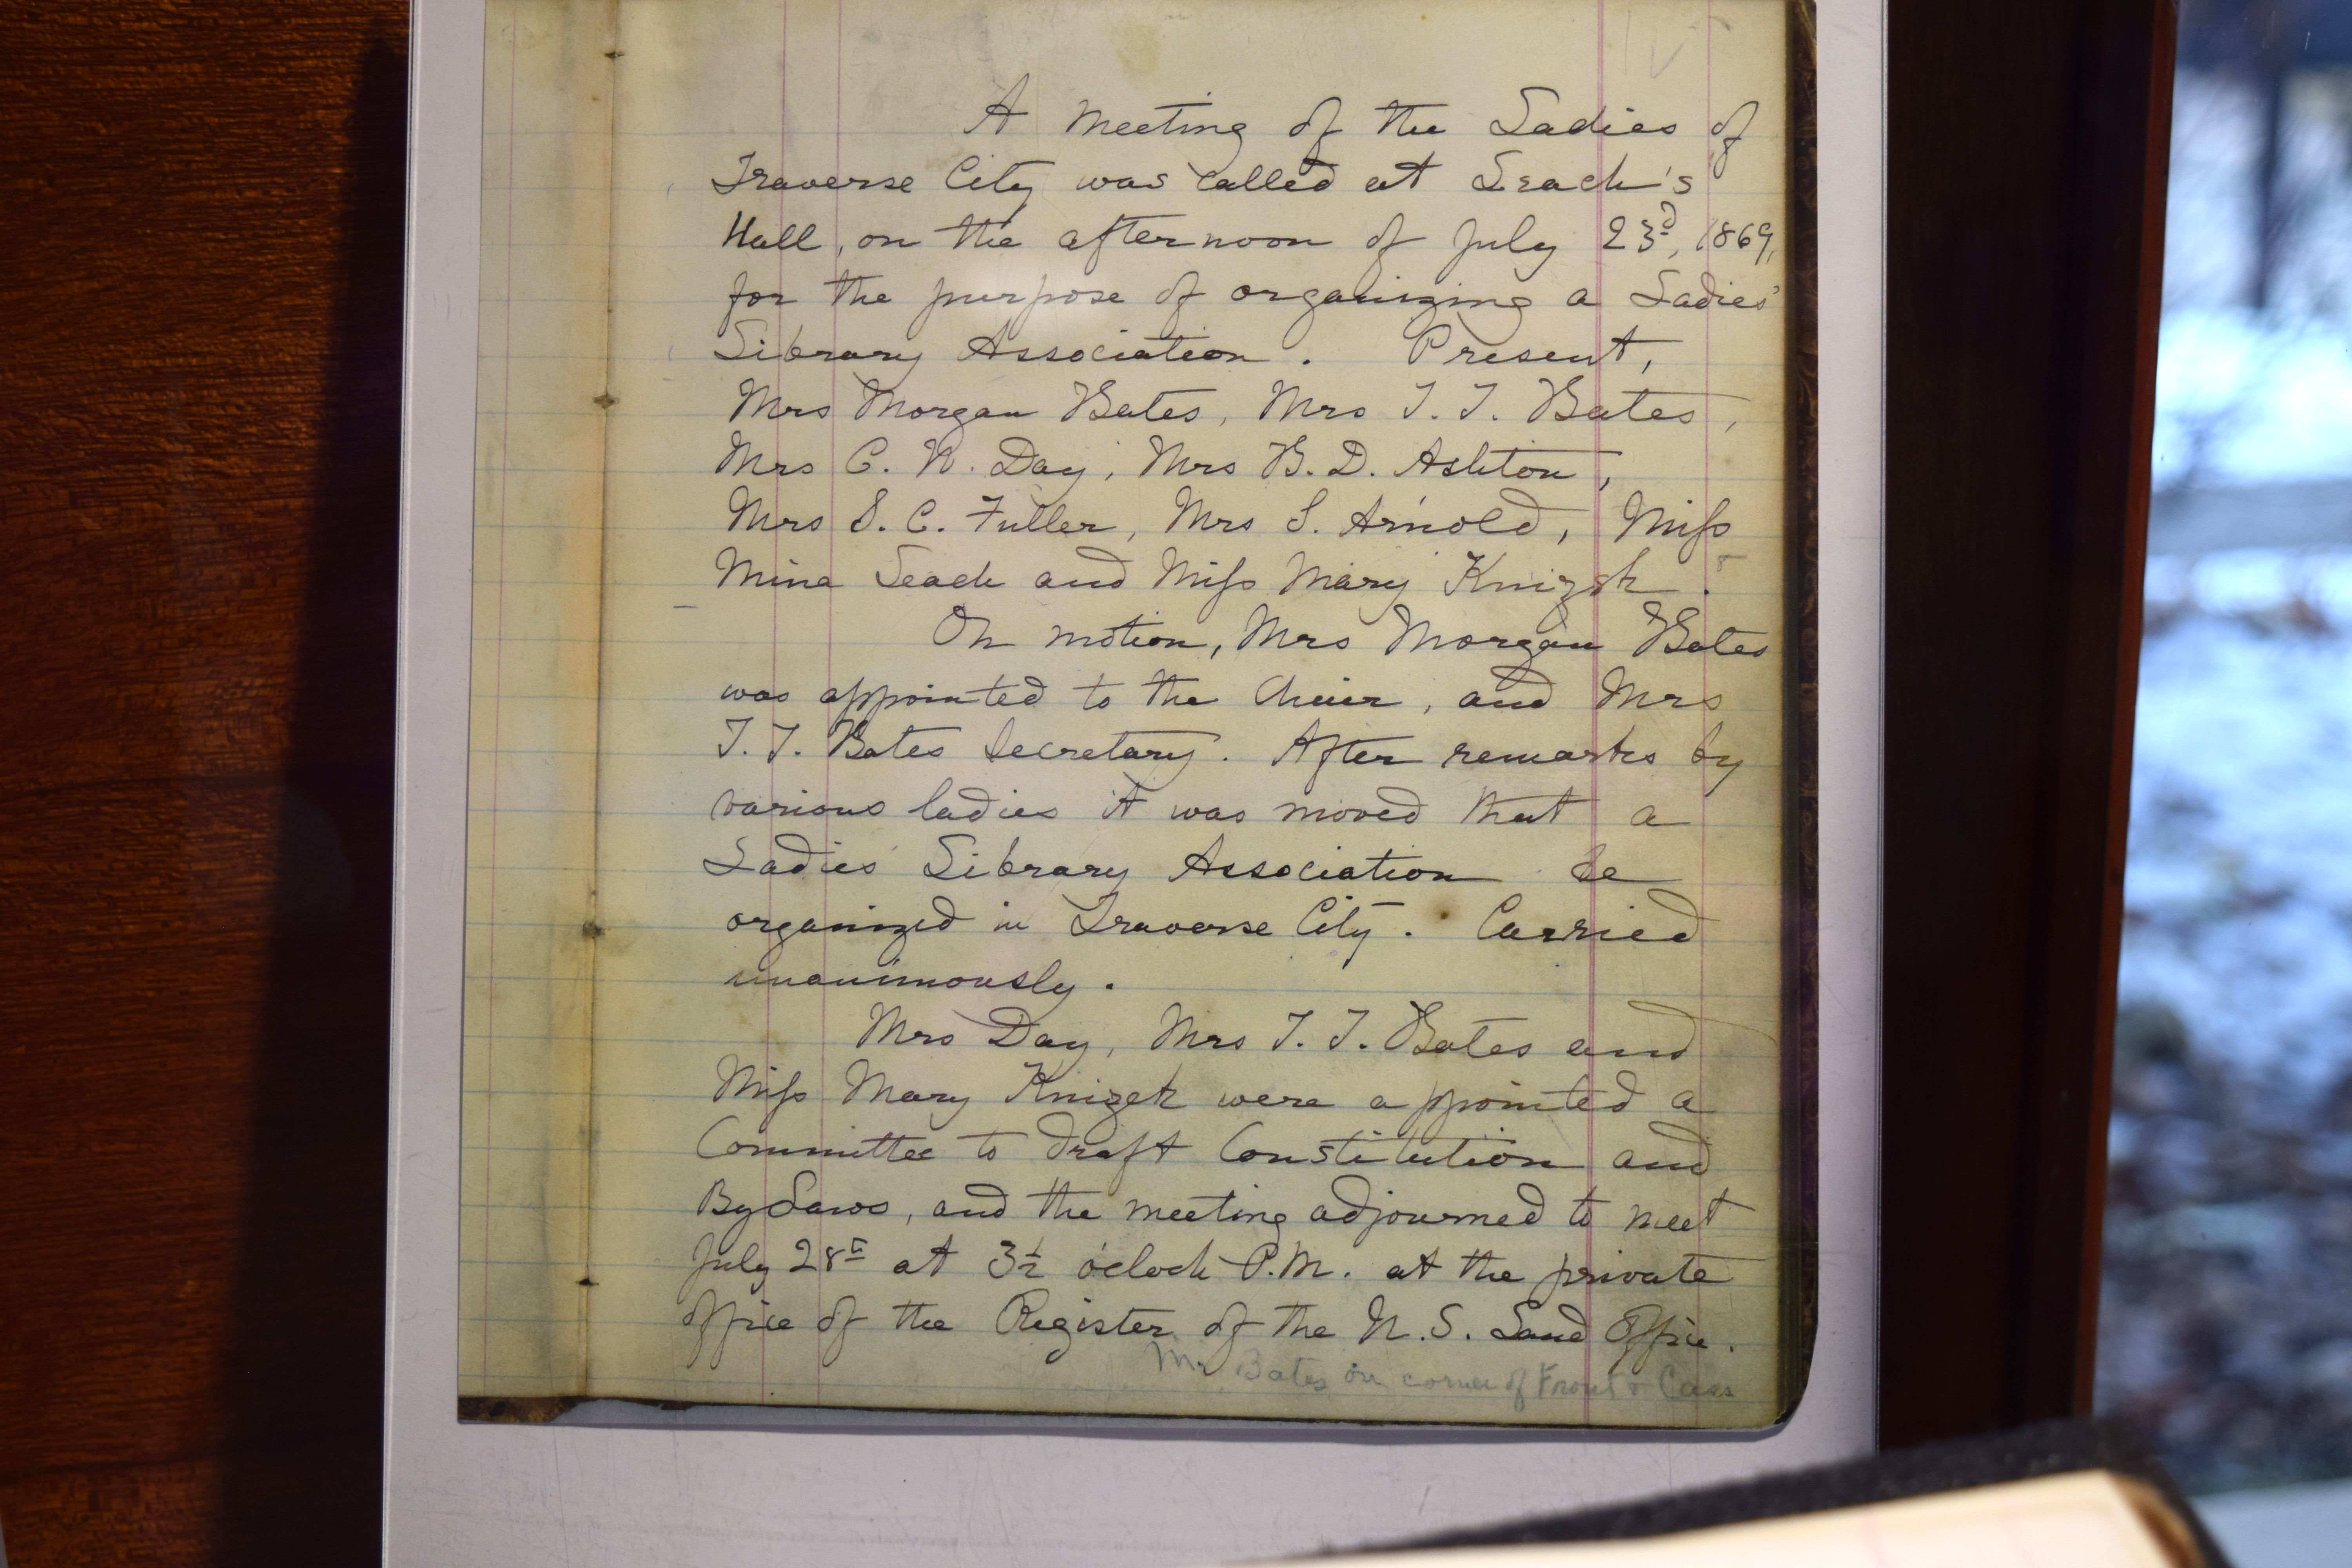 A meeting of the Ladies of
Traverse City was called at Leach's
Hall, on the afternoon of July 23d, 1869,
for the purpose of organizing a Ladies'
Library Association. Present,
Mrs Morgan Bates, Mrs T. T. Bates,
Mrs C. N. Day, Mrs B. D. Ashton,
Mrs S. C. Fuller, Mrs S. Arnold, Miss
Mina Leach and Miss Mary Knizek.
On motion, Mrs Morgan Bates
was appointed to the Chair, and Mrs
T. T. Bates Secretary. After remarks by
various ladies it was moved that a
Ladies' Library Association be
organized in Traverse City. Carried
unanimously.
Mrs Day, Mrs T. T. Bates and
Miss Mary Knizek were appointed a
Committee to draft Constitution and
By Laws, and the meeting adjourned to meet
July 28th at 3½ o'clock P.M. at the private
office of the Register of the U.S. Land Office.
Mr Bates on corner of Front & Cass